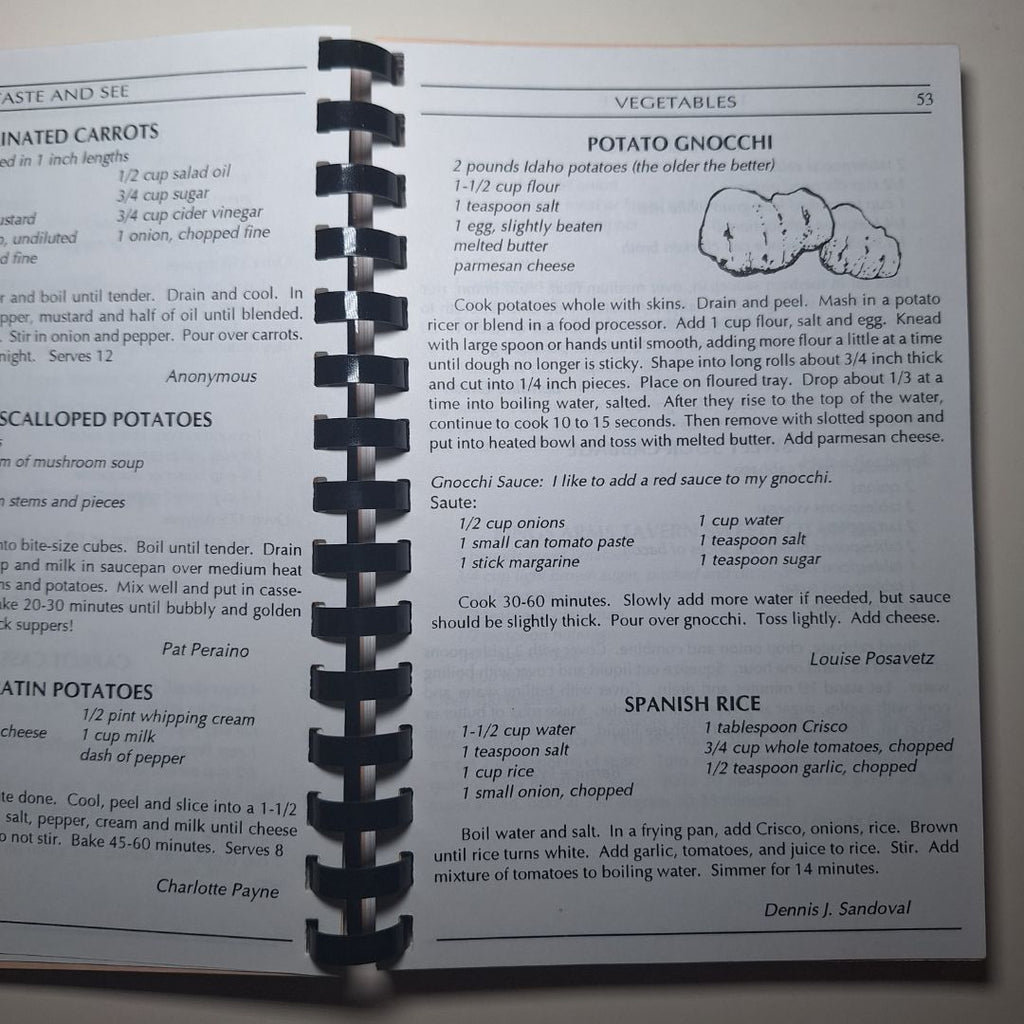 TASTE AND SEE
INATED CARROTS
ed in 1 inch lengths
1/2 cup salad oil
3/4 cup sugar
ustard 3/4 cup cider vinegar
, undiluted 1 onion, chopped fine
d fine
r and boil until tender. Drain and cool. In
pper, mustard and half of oil until blended.
. Stir in onion and pepper. Pour over carrots.
night. Serves 12
Anonymous
SCALLOPED POTATOES
s
m of mushroom soup
stems and pieces
nto bite-size cubes. Boil until tender. Drain
p and milk in saucepan over medium heat
ns and potatoes. Mix well and put in casse-
ke 20-30 minutes until bubbly and golden
ck suppers!
Pat Peraino
ATIN POTATOES
1/2 pint whipping cream
cheese 1 cup milk
dash of pepper
te done. Cool, peel and slice into a 1-1/2
salt, pepper, cream and milk until cheese
o not stir. Bake 45-60 minutes. Serves 8
Charlotte Payne
VEGETABLES 53
POTATO GNOCCHI
2 pounds Idaho potatoes (the older the better)
1-1/2 cup flour
1 teaspoon salt
1 egg, slightly beaten
melted butter
parmesan cheese
Cook potatoes whole with skins. Drain and peel. Mash in a potato
ricer or blend in a food processor. Add 1 cup flour, salt and egg. Knead
with large spoon or hands until smooth, adding more flour a little at a time
until dough no longer is sticky. Shape into long rolls about 3/4 inch thick
and cut into 1/4 inch pieces. Place on floured tray. Drop about 1/3 at a
time into boiling water, salted. After they rise to the top of the water,
continue to cook 10 to 15 seconds. Then remove with slotted spoon and
put into heated bowl and toss with melted butter. Add parmesan cheese.
Gnocchi Sauce: I like to add a red sauce to my gnocchi.
Saute:
1/2 cup onions 1 cup water
1 small can tomato paste 1 teaspoon salt
1 stick margarine 1 teaspoon sugar
Cook 30-60 minutes. Slowly add more water if needed, but sauce
should be slightly thick. Pour over gnocchi. Toss lightly. Add cheese.
Louise Posavetz
SPANISH RICE
1-1/2 cup water 1 tablespoon Crisco
1 teaspoon salt 3/4 cup whole tomatoes, chopped
1 cup rice 1/2 teaspoon garlic, chopped
1 small onion, chopped
Boil water and salt. In a frying pan, add Crisco, onions, rice. Brown
until rice turns white. Add garlic, tomatoes, and juice to rice. Stir. Add
mixture of tomatoes to boiling water. Simmer for 14 minutes.
Dennis J. Sandoval